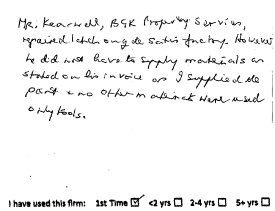 Mr. Kearwell, BGK Property Services,
repaired latch on gate satisfactory. However
he did not have to supply materials as
stated on his invoice as I supplied the
part & no other materials were used
only tools.
I have used this firm: 1st Time ☑ <2 yrs ☐ 2-4 yrs ☐ 5+ yrs ☐